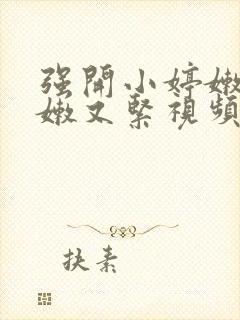 强開小婷嫩
嫩又緊視頻
抉素